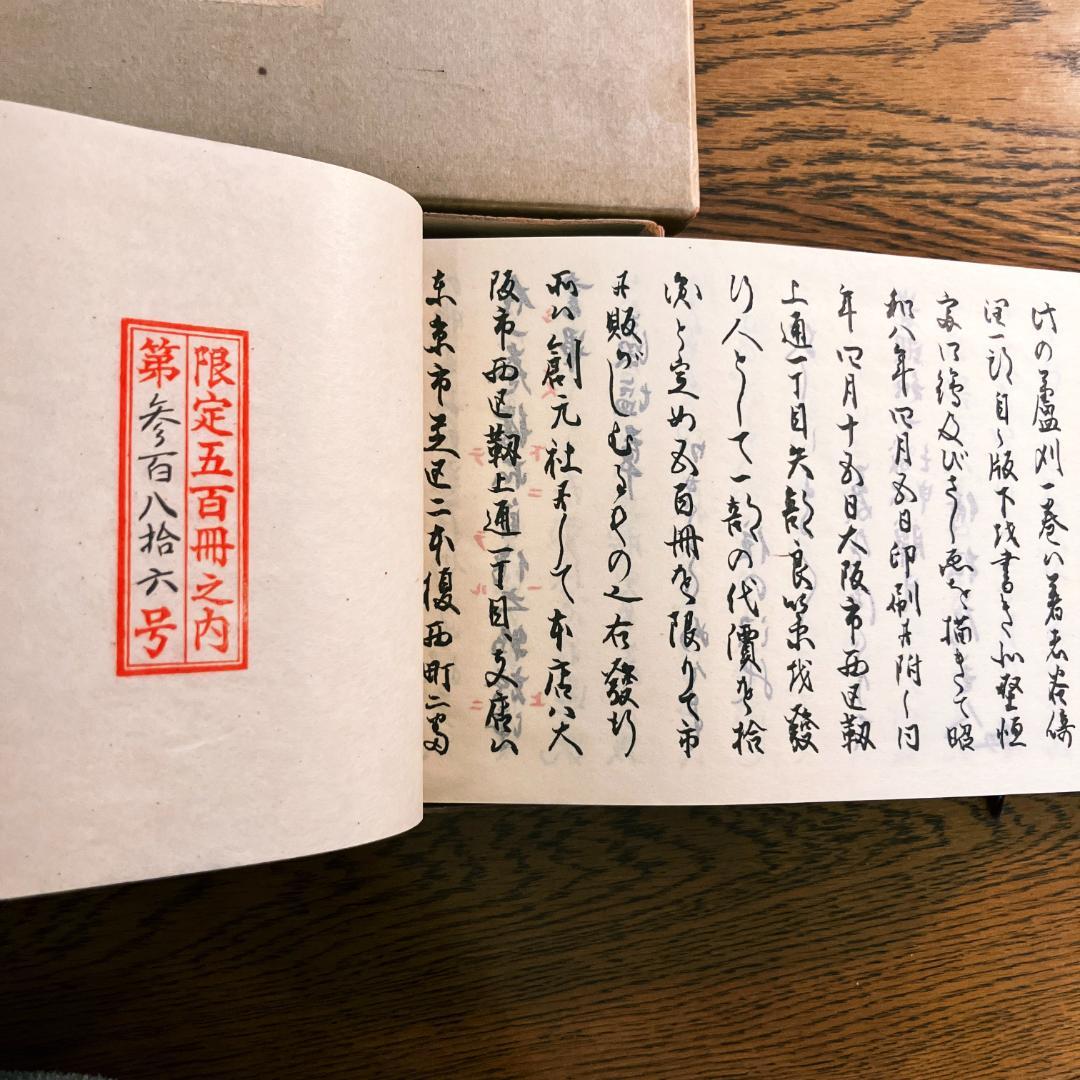 此の蘆刈一巻ハ著者谷崎
潤一郎自ら版下を書き北野恒
富口繪及びさし画を描きて昭
和八年四月五日印刷に附し同
年四月十五日大阪市西区靱
上通一丁目矢部良策を發
行人として一部の代價を拾
圓と定め五百冊を限りて市
に販がしむるもの也右發行
所ハ創元社にして本店ハ大
阪市西区靱上通一丁目、支店ハ
東京市芝区二本榎西町二番
限定五百冊之内
第参百八拾六号